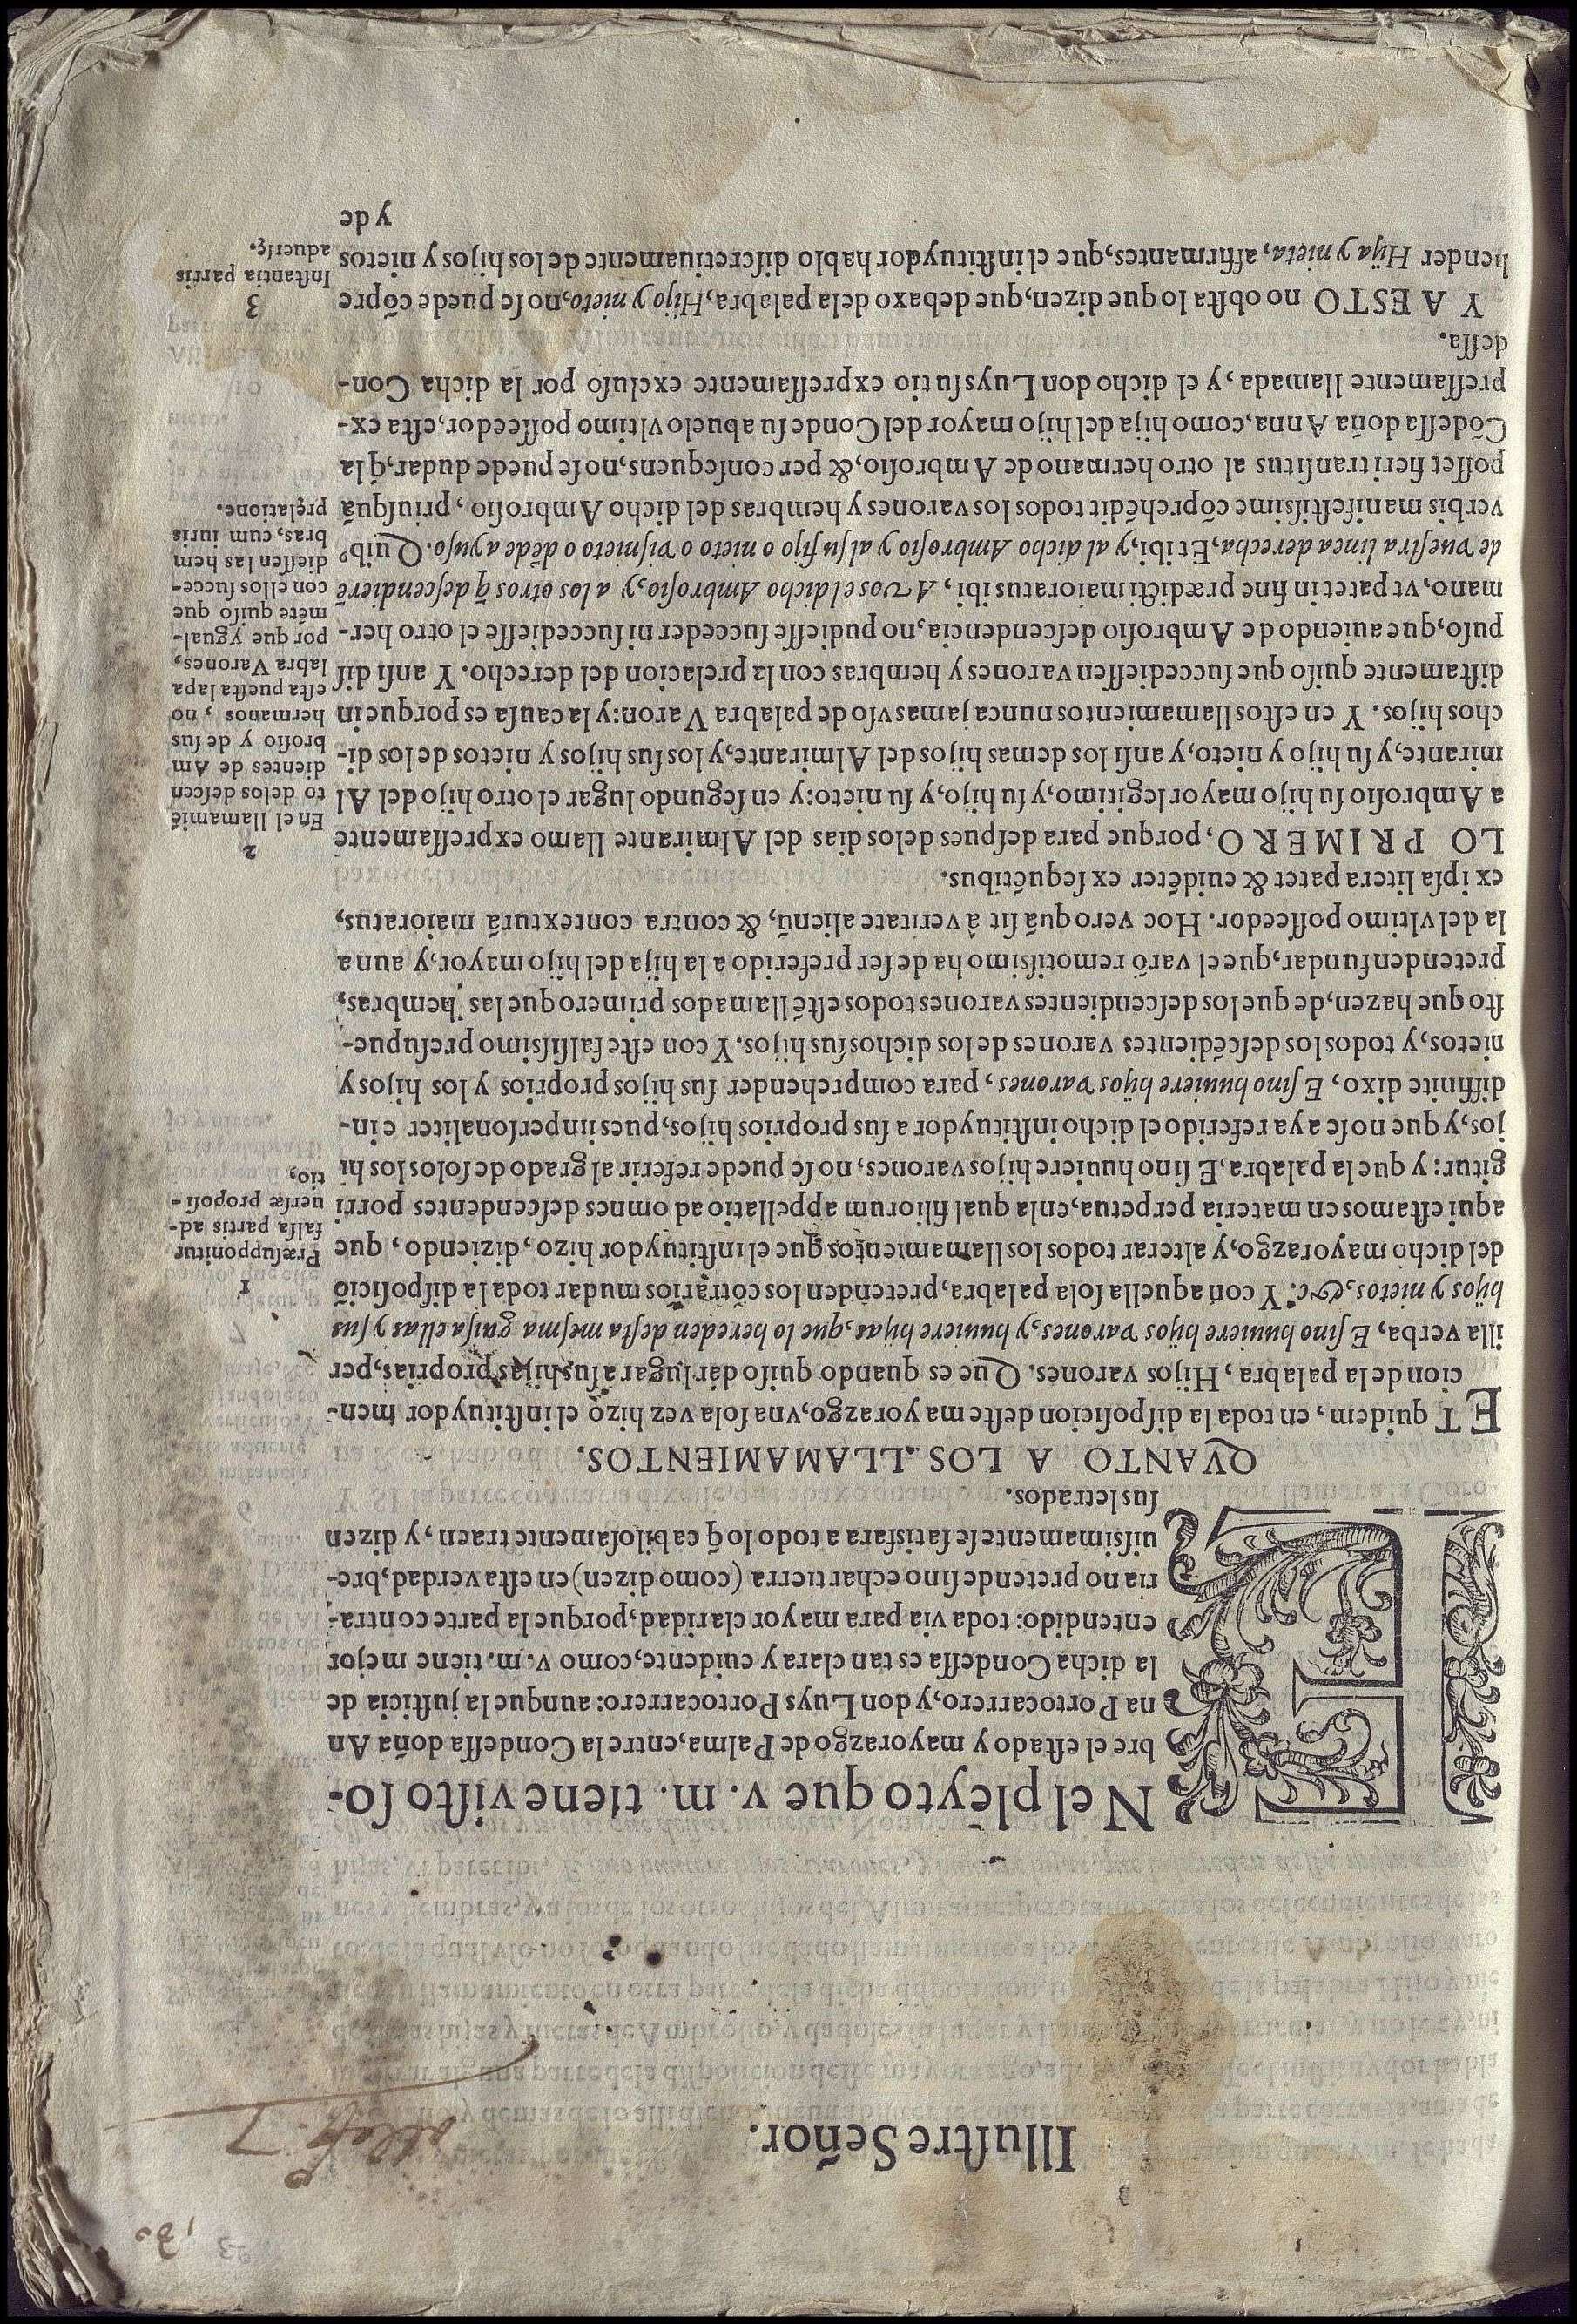 Illuſtre Señor.
EN el pleyto que v. m. tiene viſto ſo-
bre el eſtado y mayorazgo de Palma, entre la Condeſſa doña An
na Portocarrero, y don Luys Portocarrero: aunque la juſticia de
la dicha Condeſſa es tan clara y euidente, como v. m. tiene mejor
entendido: toda via para mayor claridad, porque la parte contra-
ria no pretende ſino echar tierra (como dizen) en eſta verdad, bre-
uiſsimamente ſe ſatisfara a todo lo q̃ cabiloſamente traen, y dizen
ſus letrados.
QVANTO A LOS LLAMAMIENTOS.
ET quidem, en toda la diſpoſicion deſte mayorazgo, vna ſola vez hizo el inſtituydor men-
cion de la palabra, Hijos varones. Que es quando quiſo dar lugar a ſus hijas proprias, per
illa verba, E ſino huuiere hijos varones, y huuiere hijas, que lo hereden deſta meſma guiſa ellas y ſus
hijos y nietos, &c. Y con aquella ſola palabra, pretenden los cõtrarios mudar toda la diſpoſiciõ
del dicho mayorazgo, y alterar todos los llamamientos que el inſtituydor hizo, diziendo, que
aqui eſtamos en materia perpetua, en la qual filiorum appellatio ad omnes deſcendentes porri
gitur: y que la palabra, E ſino huuiere hijos varones, no ſe puede referir al grado de ſolos los hi
jos, y que no ſe aya referido el dicho inſtituydor a ſus proprios hijos, pues inperſonaliter e in-
diffinite dixo, E ſino huuiere hijos varones, para comprehender ſus hijos proprios y los hijos y
nietos, y todos los deſcẽdientes varones de los dichos ſus hijos. Y con eſte falſiſsimo preſupue-
ſto que hazen, de que los deſcendientes varones todos eſtẽ llamados primero que las hembras,
pretenden fundar, que el varõ remotiſsimo ha de ſer preferido a la hija del hijo mayor, y aun a
la del vltimo poſſeedor. Hoc vero quã ſit à veritate alienũ, & contra contexturã maioratus,
ex ipſa litera patet & euidẽter ex ſequẽtibus.
LO PRIMERO, porque para deſpues de los dias del Almirante llamo expreſſamente
a Ambroſio ſu hijo mayor legitimo, y ſu hijo, y ſu nieto: y en ſegundo lugar el otro hijo del Al
mirante, y ſu hijo y nieto, y anſi los demas hijos del Almirante, y los ſus hijos y nietos de los di-
chos hijos. Y en eſtos llamamientos nunca jamas vſo de palabra Varon: y la cauſa es porque in
diſtamente quiſo que ſuccedieſſen varones y hembras con la prelacion del derecho. Y anſi diſ
puſo, que auiendo de Ambroſio deſcendencia, no pudieſſe ſucceder ni ſuccedieſſe el otro her-
mano, vt patet in fine prædicti maioratus ibi, A vos el dicho Ambroſio, y a los otros q̃ deſcendierẽ
de vueſtra linea derecha, Et ibi, y al dicho Ambroſio y al ſu fijo o nieto o viſnieto o dẽde ayuſo. Quibꝰ
verbis manifeſtiſsime cõprehẽdit todos los varones y hembras del dicho Ambroſio, priuſquã
poſſet fieri tranſitus al otro hermano de Ambroſio, & per conſequens, no ſe puede dudar, q̃ la
Cõdeſſa doña Anna, como hija del hijo mayor del Conde ſu abuelo vltimo poſſeedor, eſta ex-
preſſamente llamada, y el dicho don Luys ſu tio expreſſamente excluſo por la dicha Con-
deſſa.
Y A ESTO no obſta lo que dizen, que debaxo de la palabra, Hijo y nieto, no ſe puede cõpre
hender Hija y nieta, affirmantes, que el inſtituydor hablo diſcretiuamente de los hijos y nietos
y de
1
Præſupponitur
falſa partis ad-
uerſæ propoſi-
tio,
2
En el llamamiẽ
to delos deſcen
dientes de Am
broſio y de ſus
hermanos, no
eſta pueſta la pa
labra Varones,
por que ygual-
mẽte quiſo que
con ellos ſucce-
dieſſen las hem
bras, cum iuris
prelatione.
3
Inſtantia partis
aduerſę.